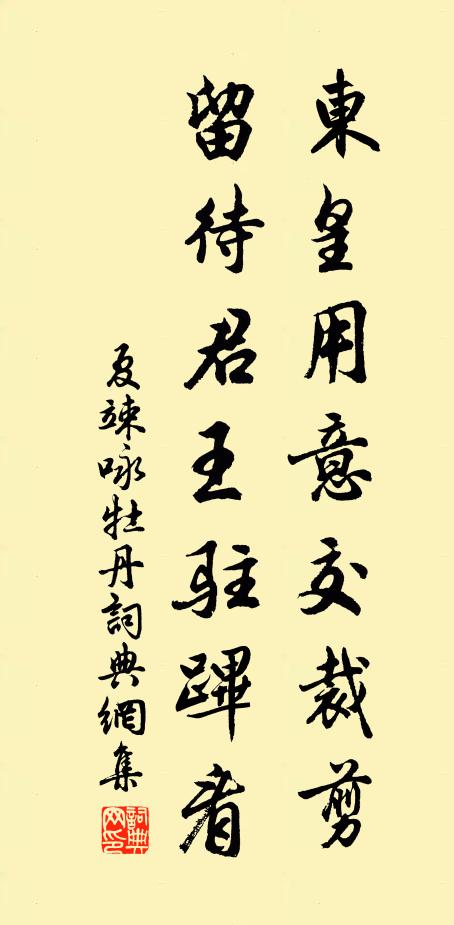 東皇用意交裁剪
留待君王駐蹕看
夏竦咏牡丹詞典網集
詞典网印